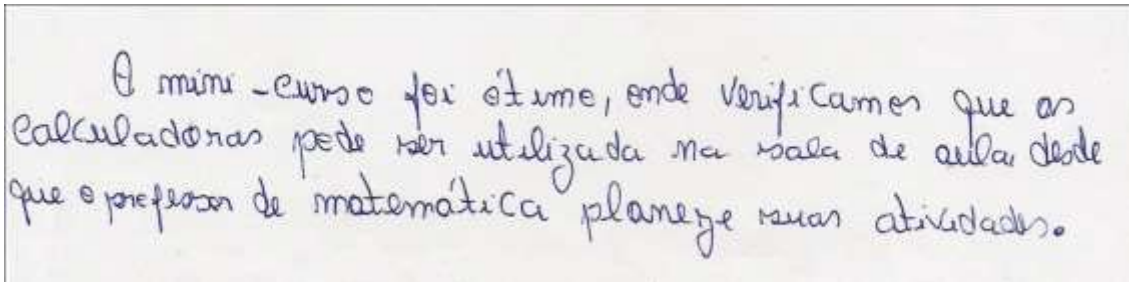 O mini-curso foi ótimo, onde verificamos que as
calculadoras pode ser utilizada na sala de aula, desde
que o professor de matemática planeje suas atividades.